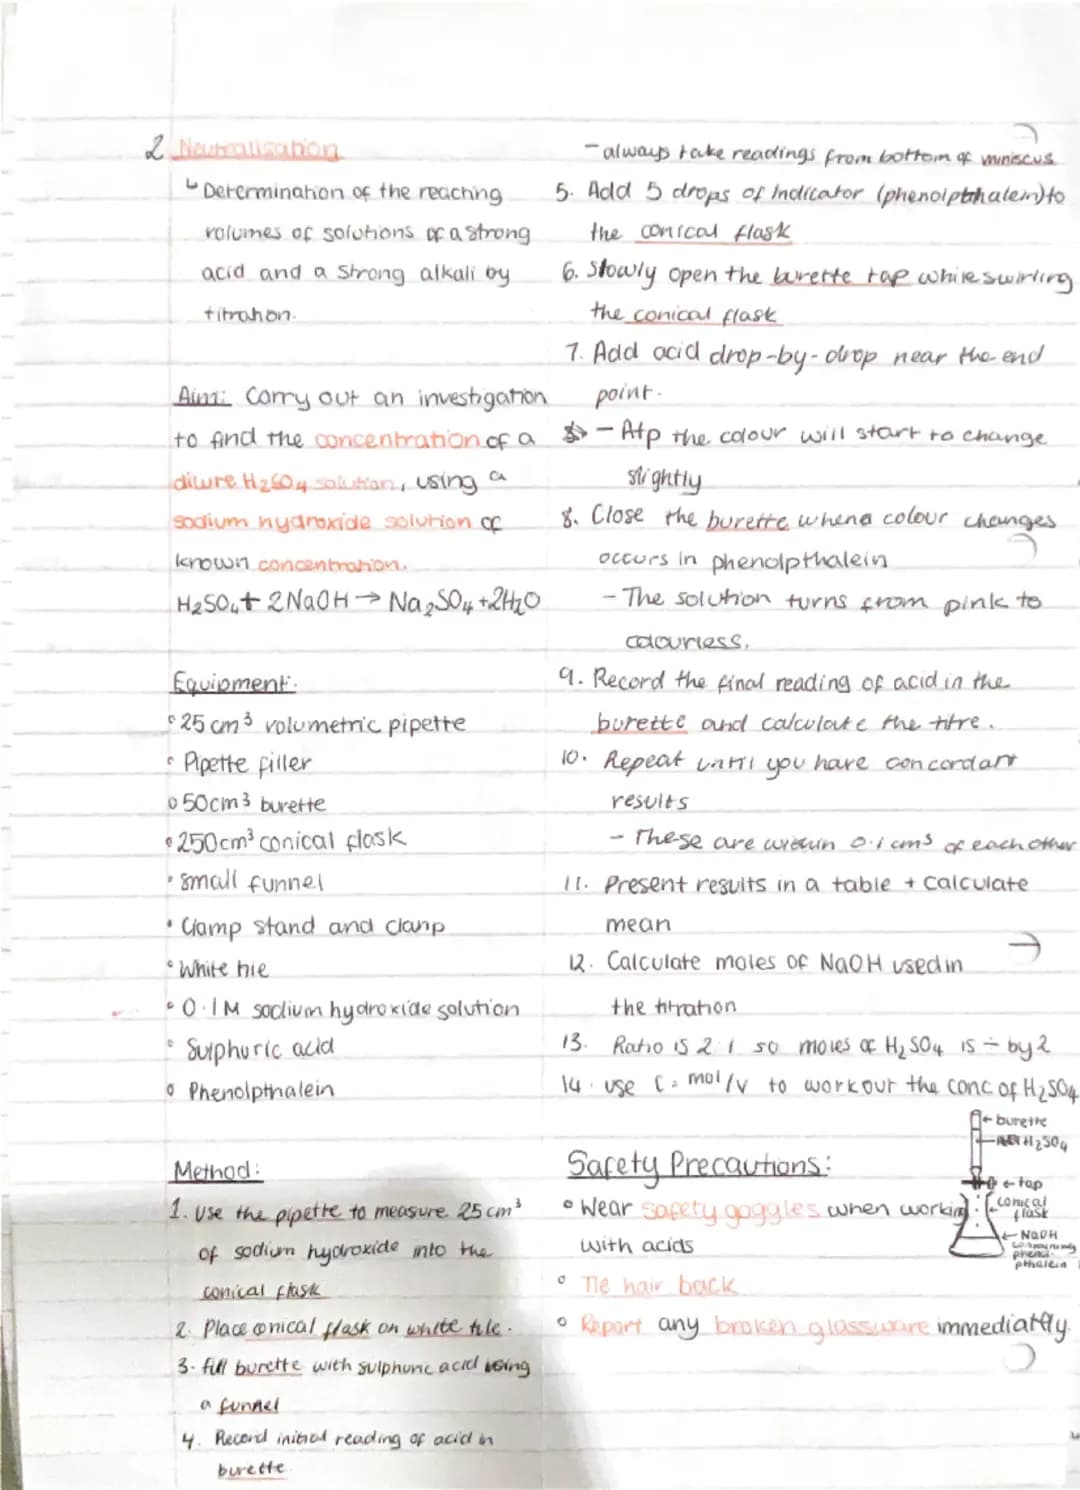 2 Neutralisation
↳ Determination of the reacting
volumes of solutions of a strong
acid and a strong alkali by
titration.
Aim: Carry out an investigation
to find the concentration of a
dilute H₂SO₄ solution, using a
sodium hydroxide solution of
known concentration.
H₂SO₄ + 2NaOH → Na₂SO₄ + 2H₂O
Equipment:
• 25 cm³ volumetric pipette
• Pipette filler
• 50cm³ burette
• 250cm³ conical flask
• small funnel
• Clamp stand and clamp
• White tile
• 0.1M sodium hydroxide solution
• Sulphuric acid
• Phenolpthalein
Method:
1. Use the pipette to measure 25 cm³
of sodium hydroxide into the
conical flask
2. Place conical flask on white tile.
3. fill burette with sulphuric acid using
a funnel
4. Record initial reading of acid in
burette.
- always take readings from bottom of miniscus
5. Add 5 drops of Indicator (phenolpthalein) to
the conical flask
6. Slowly open the burette tap while swirling
the conical flask
7. Add acid drop-by-drop near the end
point.
- Atp the colour will start to change
slightly
8. Close the burette when a colour changes
occurs in phenolpthalein
- The solution turns from pink to
colourless.
9. Record the final reading of acid in the
burette and calculate the titre.
10. Repeat until you have concordant
results
- These are within 0.1 cm³ of each other
11. Present results in a table + calculate
mean
12. Calculate moles of NaOH used in
the titration
13. Ratio is 2:1 so moles of H₂SO₄ is ÷ by 2
14. use C = mol/v to work out the conc of H₂SO₄
← burette
H₂SO₄
← tap
conical
flask
← NaOH
containing
phenol-
pthalein
Safety Precautions:
• Wear safety goggles when working
with acids
• Tie hair back
• Report any broken glassware immediatly.